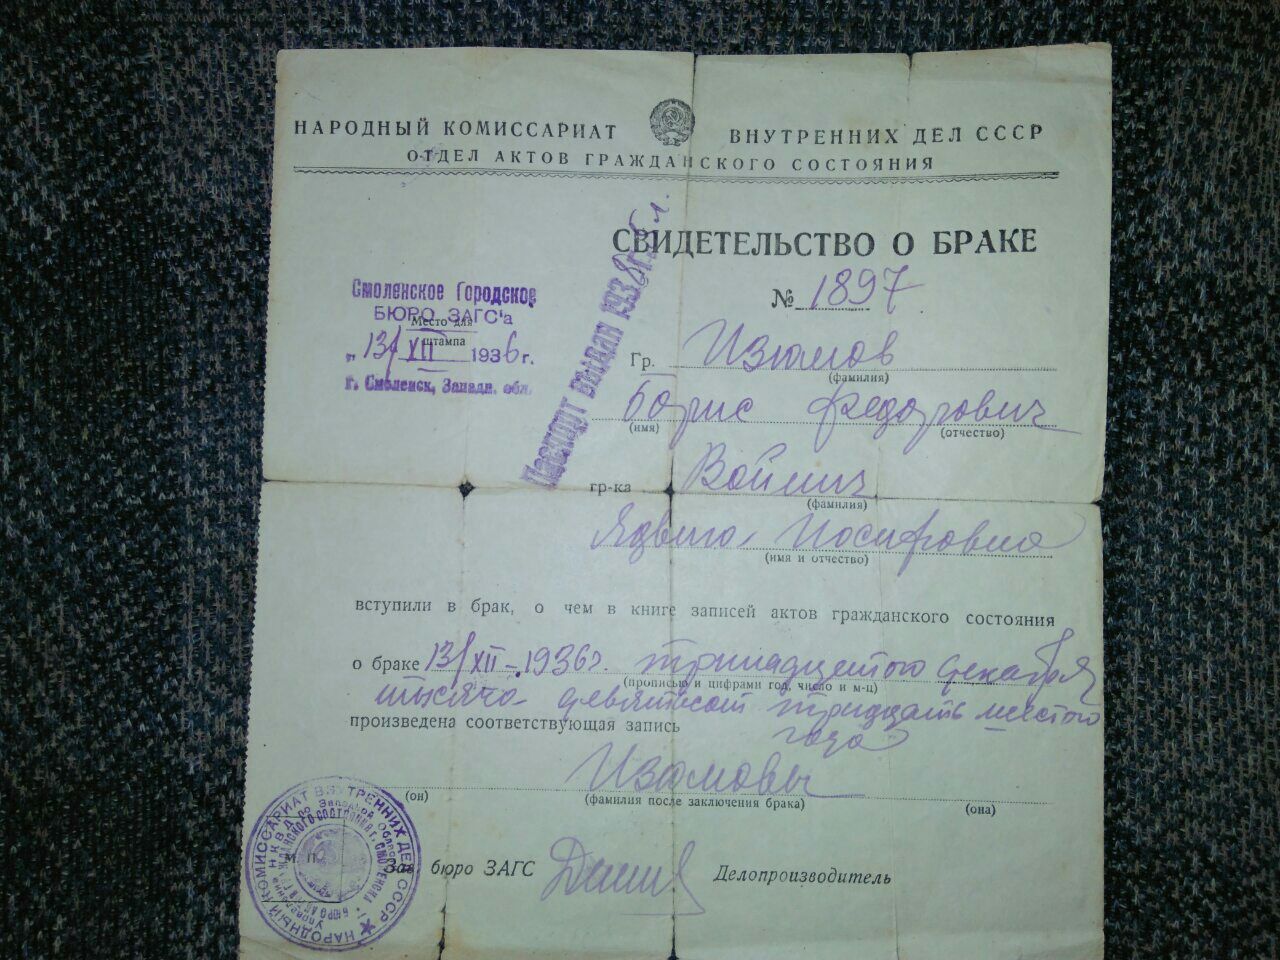 НАРОДНЫЙ КОМИССАРИАТ ВНУТРЕННИХ ДЕЛ СССР
ОТДЕЛ АКТОВ ГРАЖДАНСКОГО СОСТОЯНИЯ
СВИДЕТЕЛЬСТВО О БРАКЕ
№ 1897
Смоленское Городское
БЮРО ЗАГС'а
Место для
штампа
„13/XII 1936 г.
г. Смоленск, Западн. обл.
Паспорт выдан 1938 г.
Гр. Изюмов
(фамилия)
Борис Федорович
(имя) (отчество)
гр-ка Войнич
(фамилия)
Ядвига Иосифовна
(имя и отчество)
вступили в брак, о чем в книге записей актов гражданского состояния
о браке 13/XII-1936г. тринадцатого декабря
(прописью и цифрами год, число и м-ц)
тысяча девятьсот тридцать шестого
произведена соответствующая запись года
Изюмовы
(он) (фамилия после заключения брака) (она)
М. П.
Зав. бюро ЗАГС Делопроизводитель
НАРОДНЫЙ КОМИССАРИАТ ВНУТРЕННИХ ДЕЛ СССР
Управление НКВД по Западной Области